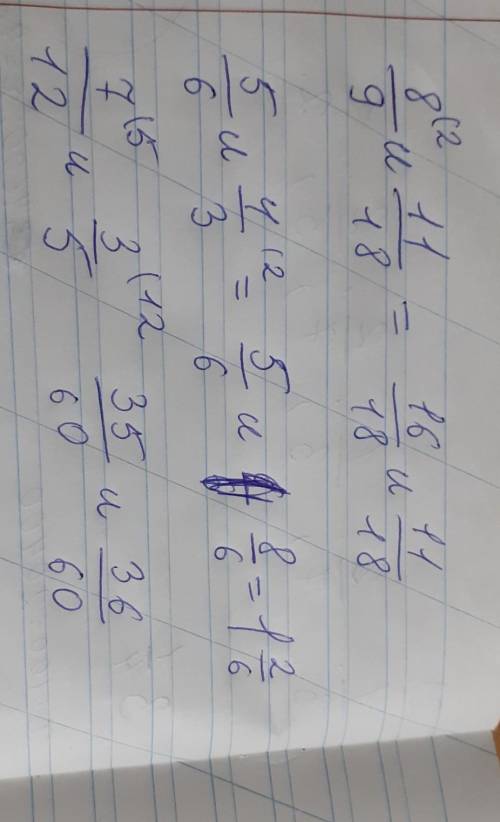 8/9 (2 и 11/18 = 16/18 и 11/18
5/6 и 4/3 (2 = 5/6 и 8/6 = 1 2/6
7/12 (5 и 3/5 (12 35/60 и 36/60